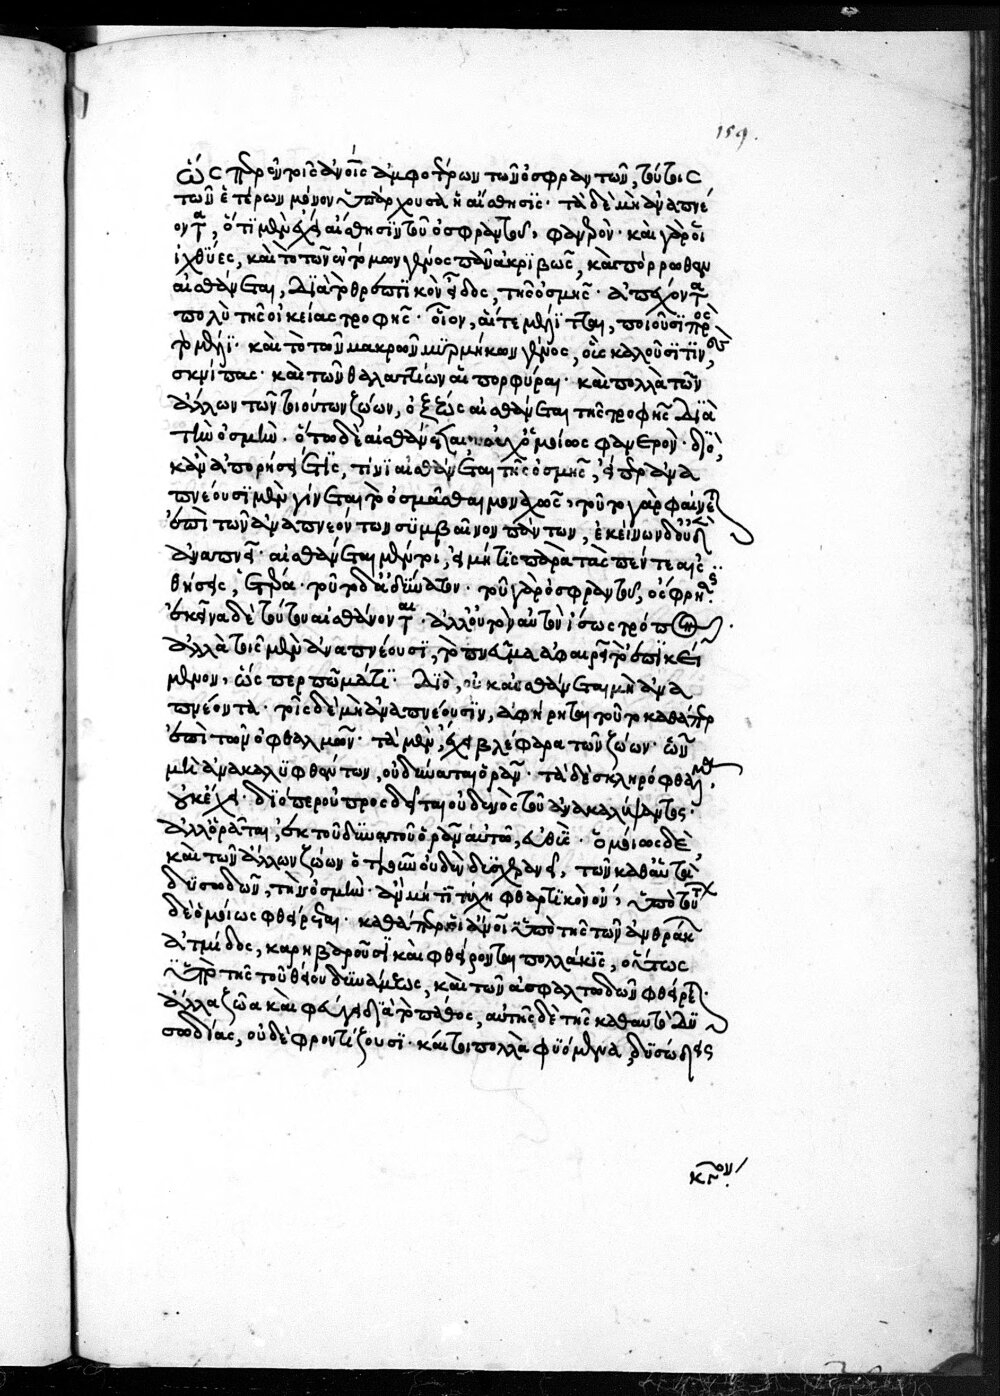 159.
ὥσπερ ἐν τοῖς ἀνοῖς ἀμφοτέρων τῶν ὀσφραντῶν, τούτοις
τῶν ἑτέρων μόνον ὑπάρχουσα ἡ αἴσθησις· τὰ δὲ μὴ ἀναπνέ
οντα, ὅτι μὲν ἔχει αἴσθησϊν τοῦ ὀσφραντοῦ, φανερόν· καὶ γὰρ οἱ
ἰχθύες, καὶ τὸ τῶν ἐντόμων γένος πᾶν ἀκριβῶς, καὶ πόρρωθεν
αἰσθάνεται, διὰ τὸ θρεπτϊκὸν εἶδος, τῆς ὀσμῆς· ἀπέχοντα
πολὺ τῆς οἰκείας τροφῆς· οἷον, αἵ τε μέλϊτται, ποιοῦσϊ πρὸς
τὸ μέλϊ· καὶ τὸ τῶν μακρῶν μϋρμήκων γένος, οὓς καλοῦσϊ τϊνες,
σκνῖπας· καὶ τῶν θαλαττίων αἱ πορφύραι· καὶ πολλὰ τῶν
ἄλλων τῶν τοιούτων ζώων, ὀξέως αἰσθάνεται τῆς τροφῆς διὰ
τὴν ὀσμήν· ὅτω δὲ αἰσθάνεται οὐχ ὁμοίως φανερόν· διὸ,
κἂν ἀπορήσειέ τις, τίνϊ αἰσθάνεται τῆς ὀσμῆς, εἴπερ ἀνα
πνέουσϊ μὲν γίνεται τὸ ὀσμᾶσθαι μοναχῶς, τοῦτο γὰρ φαίνε
ἐπὶ τῶν ἀναπνεόντων συμβαῖνον πάντων, ἐκείνων δ' οὐδὲν
ἀναπνεῖ· αἰσθάνεται μέντοι, εἰ μή τις παρὰ τὰς πέντε αἰς
θήσεις, ἑτέρα· τοῦτο δ' ἀδύνατον· τοῦ γὰρ ὀσφραντοῦ, ὄσφρησις·
ἐκεῖνα δὲ τούτου αἰσθάνονται· ἀλλ' οὐ τὸν αὐτὸν ἴσως τρόπον·
ἀλλὰ τοῖς μὲν ἀναπνέουσϊ, τὸ πνεῦμα ἀφαιρεῖ τὸ ἐπϊκεί
μενον, ὥσπερ πῶμά τϊ· διὸ, οὐκ αἰσθάνεται μὴ ἀνα
πνέοντα· τοῖς δὲ μὴ ἀναπνέουσϊν, ἀφήρηται τοῦτο καθάπερ
ἐπὶ τῶν ὀφθαλμῶν· τὰ μὲν, ἔχει βλέφαρα τῶν ζώων· ὧν
μὴ ἀνακαλϋφθέντων, οὐ δύναται ὁρᾶν· τὰ δὲ σκληρόφθαλμα,
οὐκ ἔχει· διόπερ οὐ προσδεῖται οὐδενὸς τοῦ ἀνακαλύψαντος·
ἀλλ' ὁρᾶται, ἐκ τοῦ δυνατοῦ ὁρᾶν αὐτῶ, εὐθύς· ὁμοίως δὲ
καὶ τῶν ἄλλων ζώων ὁτιοῦν οὐδὲν δυσχεραίνει, τῶν καθ' αὑτὰ
δϋσωδῶν, τὴν ὀσμήν· ἂν μή τι τύχη φθαρτϊκὸν ὄν, ὑπὸ τούτων
δὲ ὁμοίως φθείρεται· καθάπερ οἱ ἄνοι ὑπὸ τῆς τῶν ἀνθράκων
ἀτμίδος, καρηβαροῦσϊ καὶ φθείρονται πολλάκις, οὕτως
ὑπὸ τῆς τοῦ θείου δυνάμεως, καὶ τῶν ἀσφαλτωδῶν φθείρεται
ἄλλα ζῶα καὶ φεύγει διὰ τὸ πάθος, αὐτῆς δὲ τῆς καθ' αὑτὸ δϋ
σωδίας, οὐδὲ φροντίζουσϊ· καίτοι πολλὰ φϋόμενα, δυσώδεις